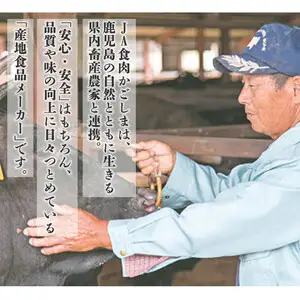 JA食肉かごしまは、
鹿児島の自然とともに生きる
県内畜産農家と連携。
「安心・安全」はもちろん、
品質や味の向上に日々つとめている
「産地食品メーカー」です。